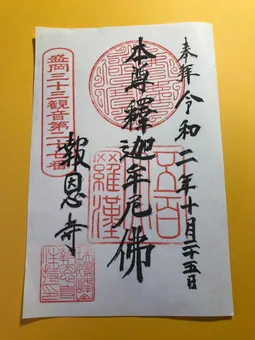 奉拝 令和二年十月二十五日
本尊釋迦牟尼佛
五百
羅漢
盛岡三十三観音第二十七番
報恩寺